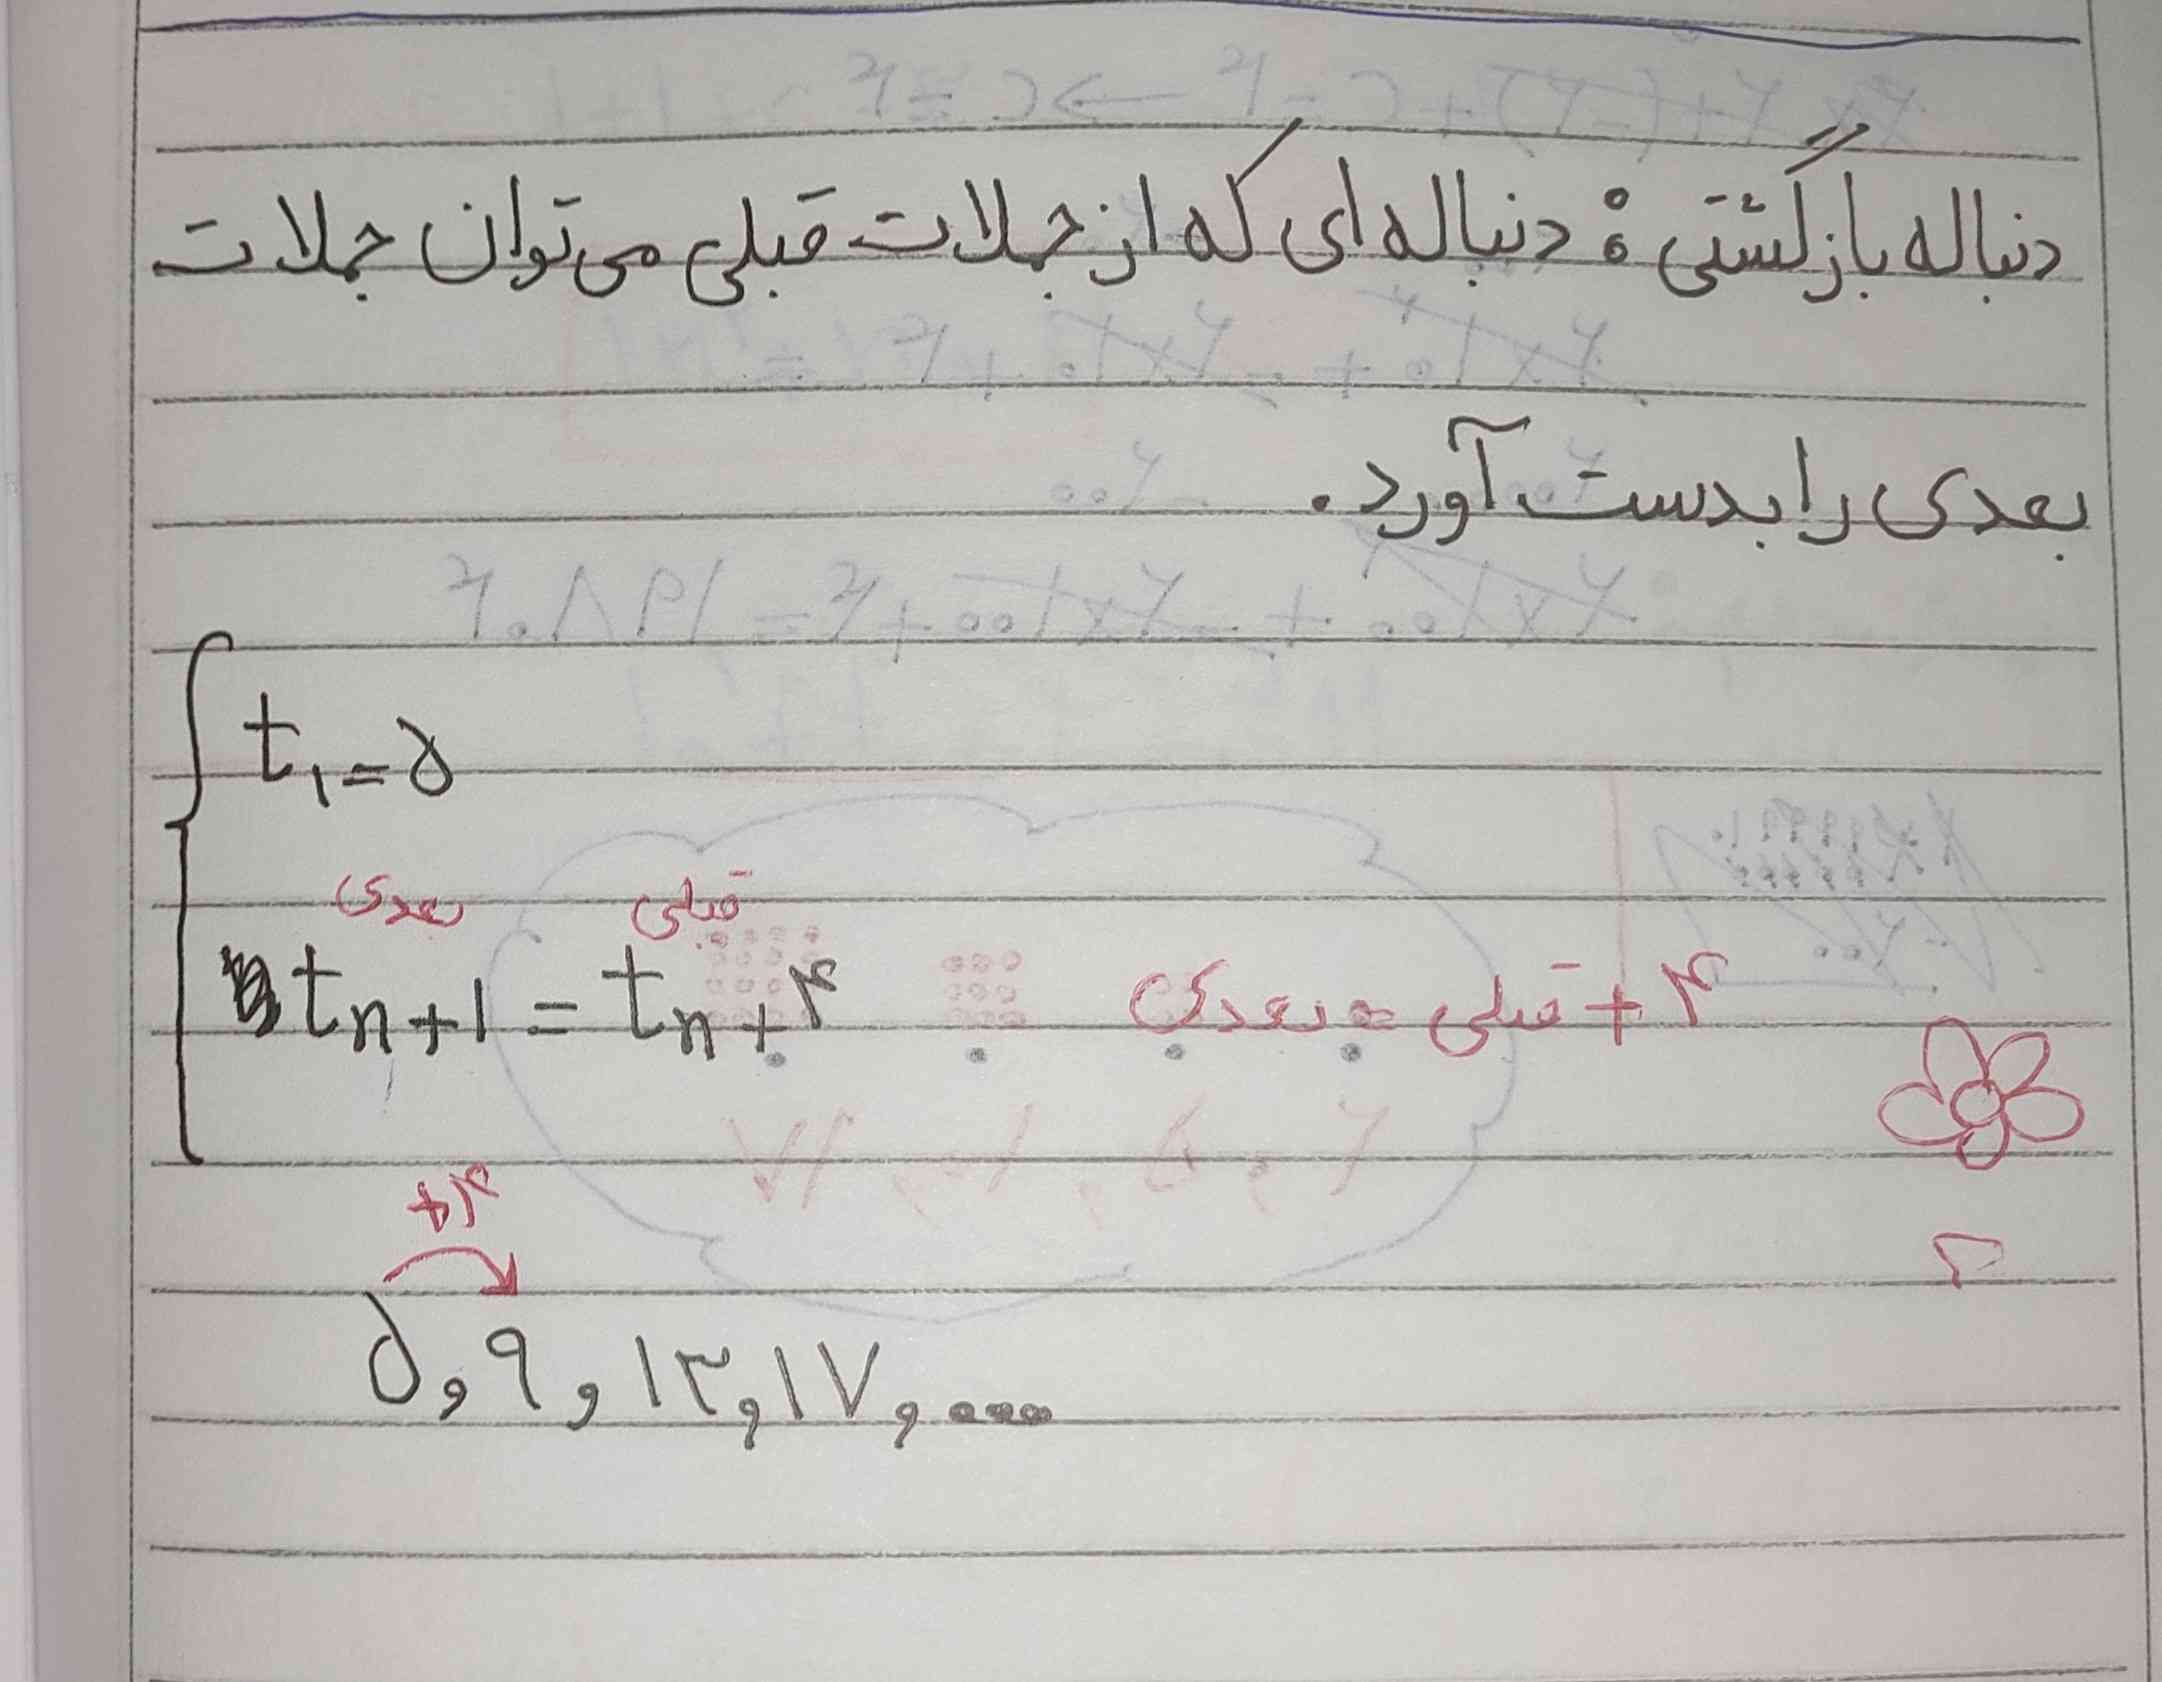 دنباله بازگشتی: دنباله ای که از جملات قبلی می توان جملات
بعدی را بدست آورد.
t₁ = ۵
بعدی قبلی
tn+1 = tn + ۴ بعدی = قبلی + ۴
+۴
۵, ۹, ۱۳, ۱۷, ...